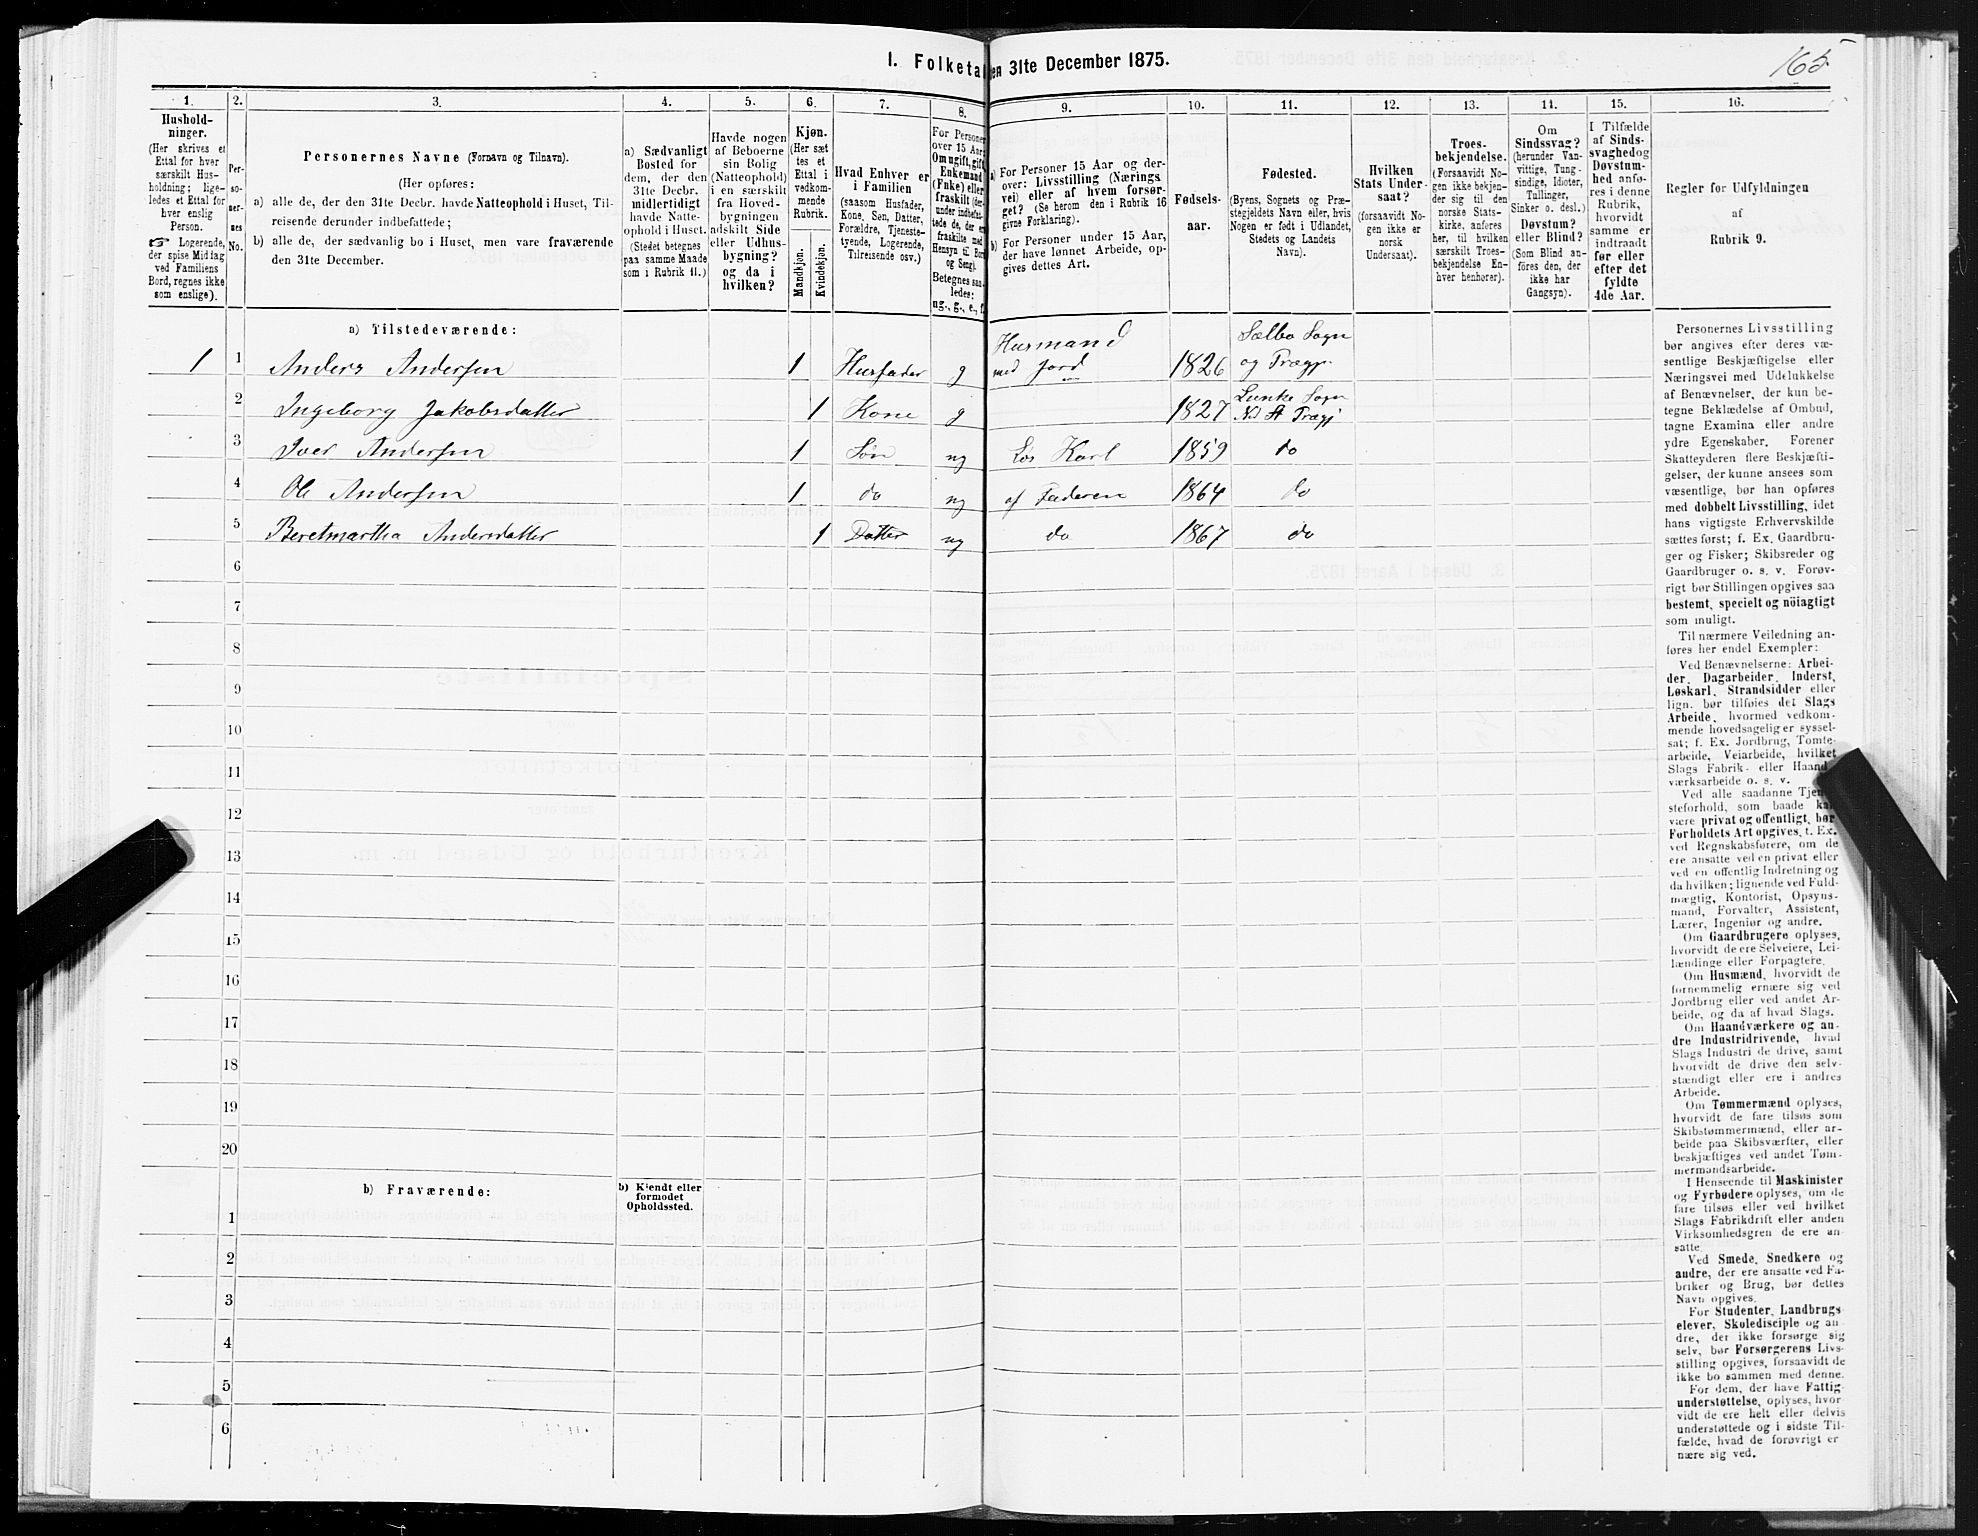 165
I. Folketal den 31te December 1875.
1. 2. 3. 4. 5. 6. 7. 8. 9. 10. 11. 12. 13. 14. 15. 16.
Hushold-
ninger.
(Her skrives et
Ettal for hver
særskilt Hus-
holdning; lige-
ledes et Ettal for
hver enslig
Person.
☞ Logerende,
der spise Middag
ved Familiens
Bord, regnes ikke
som enslige).
Per-
so-
ner-
nes
No.
Personernes Navne (Fornavn og Tilnavn).
(Her opføres:
a) alle de, der den 31te Decbr. havde Natteophold i Huset, Til-
reisende derunder indbefattede;
b) alle de, der sædvanlig bo i Huset, men vare fraværende
den 31te December.
a) Sædvanligt
Bosted for
dem, der den
31te Decbr.
midlertidigt
havde Natte-
ophold i Huset.
(Stedet betegnes
paa samme Maade
som i Rubrik 11.)
Havde nogen
af Beboerne
sin Bolig
(Natteophold)
i en særskilt
fra Hoved-
bygningen
adskilt Side
eller Udhus-
bygning?
og da i
hvilken?
Kjøn.
(Her sæt
tes et
Ettal i
vedkom-
mende
Rubrik.
Mandkjøn.
Kvindekjøn.
Hvad Enhver er
i Familien
(saasom Husfader,
Kone, Søn, Datter,
Forældre, Tjeneste-
tyende, Logerende,
Tilreisende osv.)
For Personer
over 15 Aar:
Om ugift, gift,
Enkemand
(Enke) eller
fraskilt (der-
under indbefat-
tede de, der ere
fraskilte med
Hensyn til Bord
og Seng).
Betegnes saa-
ledes:
ug., g., e., f.
a) For Personer 15 Aar og der-
over: Livsstilling (Nærings-
vei) eller af hvem forsør-
get? (Se herom den i Rubrik 16
givne Forklaring).
b) For Personer under 15 Aar,
der have lønnet Arbeide, op-
gives dettes Art.
Fødsels-
aar.
Fødested.
(Byens, Sognets og Præ-
stegjeldets Navn eller, hvis
Nogen er født i Udlandet,
Stedets og Landets
Navn).
Hvilken
Stats Under-
saat?
(forsaavidt No-
gen ikke er
norsk
Undersaat).
Troes-
bekjendelse.
(Forsaavidt No-
gen ikke bekjen-
der sig til den
norske Stats-
kirke, anføres
her, til hvilken
særskilt Troes-
bekjendelse En-
hver henhører).
Om
Sindssvag?
(herunder Van-
vittige, Tung-
sindige, Idioter,
Tullinger,
Sinker o. desl.)
Døvstum?
eller Blind?
(Som Blind an-
føres den, der
ikke har
Gangsyn).
I Tilfælde
af Sinds-
svaghed og
Døvstum-
hed anfø-
res i denne
Rubrik,
hvorvidt
samme er
indtraadt
før eller
efter det
fyldte
4de Aar.
Regler for Udfyldningen
af
Rubrik 9.
a) Tilstedeværende:
1 1 Anders Andersen 1 Husfader g Husmand med Jord 1826 Sælbo Sogn og Prægj.
2 Ingeborg Jakobsdatter 1 Kone g 1827 Sogn Prægj
3 Iver Andersen 1 Søn ug Løs Karl 1859 do
4 Ole Andersen 1 do ug af Faderen 1864 do
5 Beretmartha Andersdatter 1 Datter ug do 1867 do
6
7
8
9
10
11
12
13
14
15
16
17
18
19
20
b) Fraværende:
b) Kjendt eller
formodet
Opholdssted.
1
2
3
4
5
6
Personernes Livsstilling
bør angives efter deres væ-
sentlige Beskjæftigelse eller
Næringsvei med Udelukkelse
af Benævnelser, der kun be-
tegne Beklædelse af Ombud,
tagne Examina eller andre
ydre Egenskaber. Forener
Skatteyderen flere Beskjæfti-
gelser, der kunne ansees som
væsentlige, bør han opføres
med dobbelt Livsstilling, idet
hans vigtigste Erhvervskilde
sættes først; f. Ex. Gaardbru-
ger og Fisker; Skibsreder og
Gaardbruger o. s. v. Forøv-
rigt bør Stillingen opgives saa
bestemt, specielt og nöiagtigt
som muligt.
Til nærmere Veiledning an-
føres her endel Exempler:
Ved Benævnelserne: Arbei-
der, Dagarbeider, Inderst,
Løskarl, Strandsidder eller
lign. bør tilføies det Slags
Arbeide, hvormed vedkom-
mende hovedsagelig er syssel-
sat; f. Ex. Jordbrug, Tomte-
arbeide, Veiarbeide, hvilket
Slags Fabrik- eller Haand-
værksarbeide o. s. v.
Ved alle saadanne Tjene-
steforhold, som baade kan
være privat og offentligt, bør
Forholdets Art opgives, t. Ex.
ved Regnskabsførere, om de
ere ansatte ved en privat eller
ved en offentlig Indretning og
da hvilken; lignende ved Fuld-
mægtig, Kontorist, Opsyns-
mand, Forvalter, Assistent,
Lærer, Ingeniør og andre.
Om Gaardbrugere oplyses,
hvorvidt de ere Selveiere, Lei-
lændinge eller Forpagtere.
Om Husmænd, hvorvidt de
fornemmelig ernære sig ved
Jordbrug eller ved andet Ar-
beide, og da af hvad Slags.
Om Haandværkere og an-
dre Industridrivende, hvad
Slags Industri de drive, samt
hvorvidt de drive den selv-
stændigt eller ere i andres
Arbeide.
Om Tømmermænd oplyses,
hvorvidt de fare tilsøs som
Skibstømmermænd, eller ar-
beide paa Skibsværfter, eller
beskjæftiges ved andet Tøm-
mermandsarbeide.
I Henseende til Maskinister
og Fyrbødere oplyses, om de
fare tilsøs eller ved hvilket
Slags Fabrikdrift eller anden
Virksomhedsgren de ere an-
satte.
Ved Smede, Snedkere og
andre, der ere ansatte ved Fa-
briker og Brug, bør dettes
Navn opgives.
For Studenter, Landbrugs-
elever, Skoledisciple og an-
dre, der ikke forsørge sig
selv, bør Forsørgerens Livs-
stilling opgives, forsaavidt de
ikke bo sammen med denne.
For dem, der have Fattig-
understøttelse, oplyses, hvor-
vidt de ere helt eller delvis
understøttede og i sidste Til-
fælde, hvad de forøvrigt er-
nære sig ved.